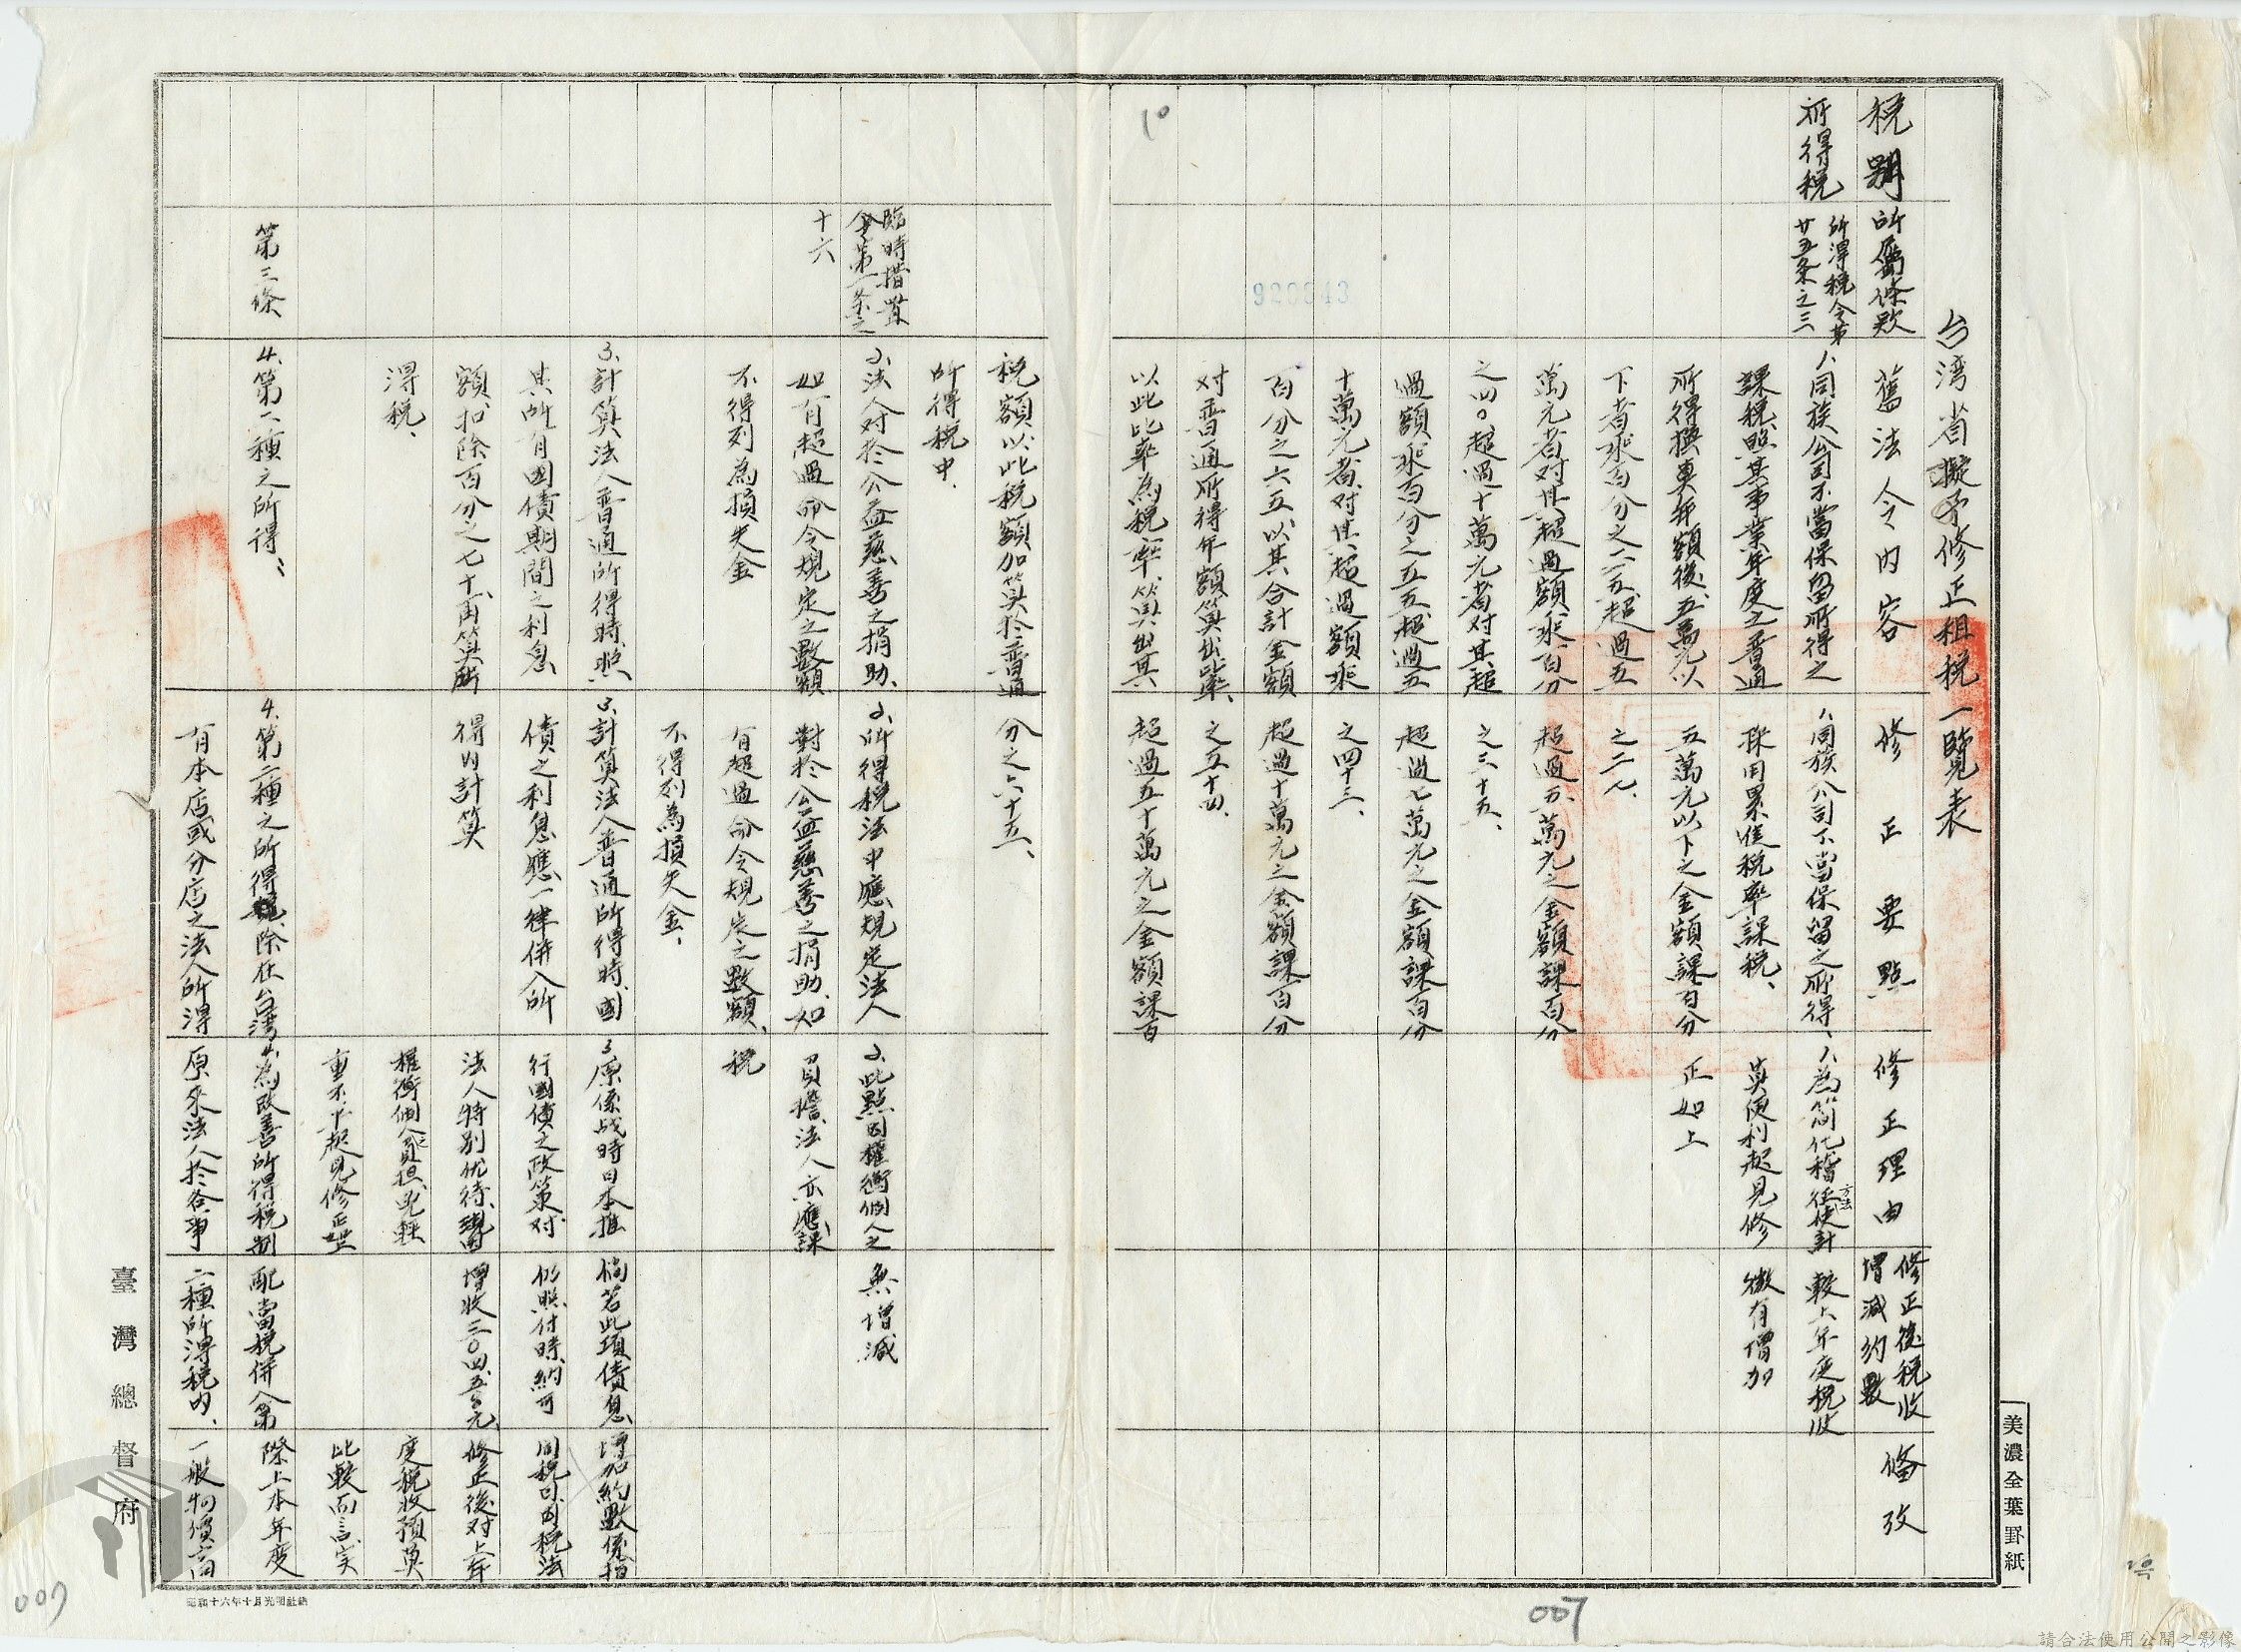 台湾省擬予修正租税一覽表
税別
所屬條款
舊法令内容
修正要點
修正理由
修正後税收
增減約數
備攷
所得税
所得税令第
廿五条之三
1、同族公司不當保留所得之
課税、照其事業年度之普通
所得換算年額後、五萬元以
下者乘百分之二五、超過五
萬元者对其超過額乘百分
之四〇、超過十萬元者对其超
過額乘百分之五五、超過五
十萬元者、对其超過額乘
百分之六五、以其合計金額
对普通所得年額算出比率、
以此比率為税率、算出其
税額、以此税額加算於普通
所得税中、
1、同族公司不當保留之所得、
採用累進税率課税、
五萬元以下之金額課百分
之二八、
超過五萬元之金額課百分
之三十五、
超過七萬元之金額課百分
之四十三、
超過十萬元之金額課百分
之五十四、
超過五十萬元之金額課百
分之六十五、
1、為简化稽征方法使計
算便利起見修
正如上
較上年度税收
微有增加
臨時措置
令第一条之
十六
2、法人对於公益慈善之捐助、
如有超過命令規定之數額
不得列為損失金
2、所得税法中應規定法人
對於公益慈善之捐助、如
有超過命令規定之數額、
不得列為損失金、
2、此點因權衡個人之
負擔、法人亦應課
税
無增減
3、計算法人普通所得時、照
其所有國債期間之利息
額、扣除百分之七十、再算所
得税、
3、計算法人普通所得時、國
債之利息應一律併入所
得内計算
3、原係战時日本推
行國債之政策对
法人特别优待、現為
權衡個人之負担、免輕
重不平起見修正如上
倘若此項債息
仍照付時、約可
增收三〇四、五〇〇元
增加約數係指
同税目因税法
修正後对上年
度税收預算
比較而言、实
際上本年度
一般物價高
第三條
4、第二種之所得、
4、第二種之所得、除在台湾
有本店或分店之法人所得
4、為改善所得税制
原來法人於各事
配當税併入第
二種所得税内、
10
920043
007
007
臺灣總督府
美濃全葉罫紙
昭和十六年十月光明社納
請合法使用公開之影像